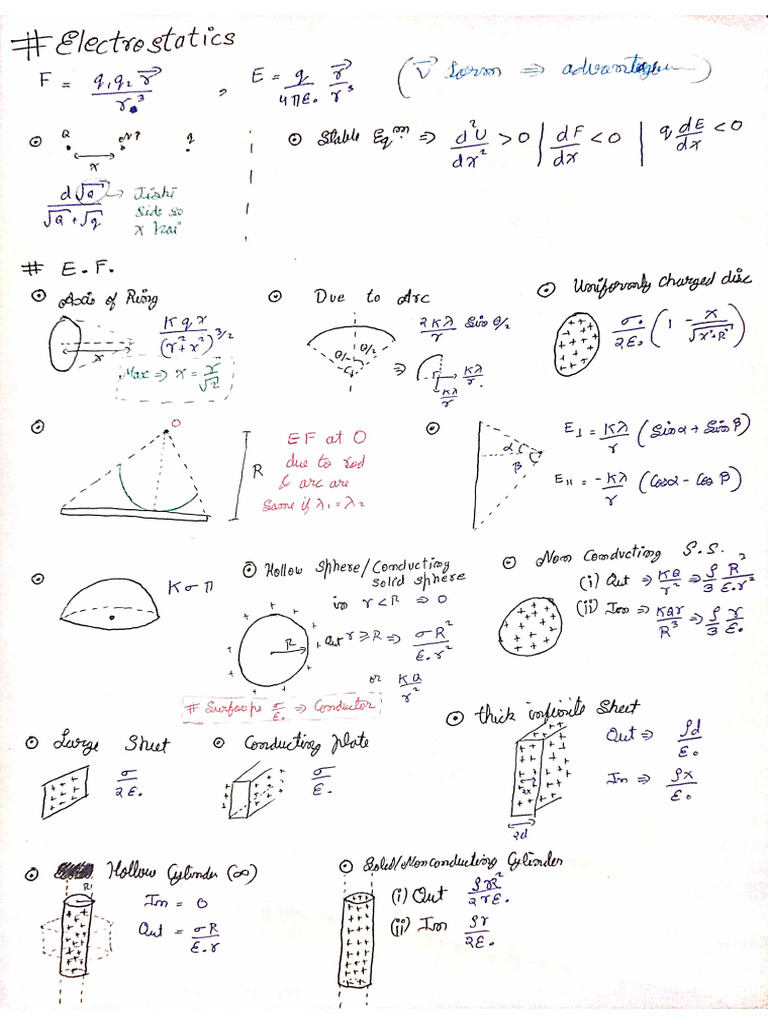 # Electrostatics
F = q₁q₂ r⃗ / r³ , E = q/4πε₀ r⃗/r³ (V⃗ form ⇒ advantageous)
Q N.P q
x
d√Q / √Q + √q → Jishi side so x hai
Stable Eqᵐ ⇒ d²U/dx² > 0 | dF/dx < 0 | q dE/dx < 0
# E.F.
Axis of Ring
Kqx / (r² + x²)^3/2
x
Max ⇒ x = r/√2
Due to Arc
θ/2 θ/2
2Kλ/r Sin θ/2
⇒ Kλ/r
Kλ/r
Uniformly charged disc
σ/2ε₀ (1 - x/√x²+R²)
O
R
EF at O
due to rod
& arc are
Same if λ₁ = λ₂
α
β
E⊥ = Kλ/r (Sinα + Sinβ)
E|| = -Kλ/r (Cosα - Cosβ)
Kσπ
Hollow Sphere/Conducting
solid sphere
in r < R ⇒ 0
R
out r ≥ R ⇒ σR²/ε₀r²
or KQ/r²
# Surface pe σ/ε₀ ⇒ Conductor
Non Conducting S.S.
(i) Out ⇒ KQ/r² ⇒ ρ/3 R³/ε₀r²
(ii) In ⇒ KQr/R³ ⇒ ρ/3 r/ε₀
Large Sheet
σ/2ε₀
Conducting plate
σ/ε₀
Thick infinite Sheet
Out ⇒ ρd/ε₀
In ⇒ ρx/ε₀
2x
2d
Hollow Cylinder (∞)
R
In = 0
Out = σR/ε₀r
Solid/Nonconducting Cylinder
(i) Out ρR²/2rε₀
(ii) In ρr/2ε₀